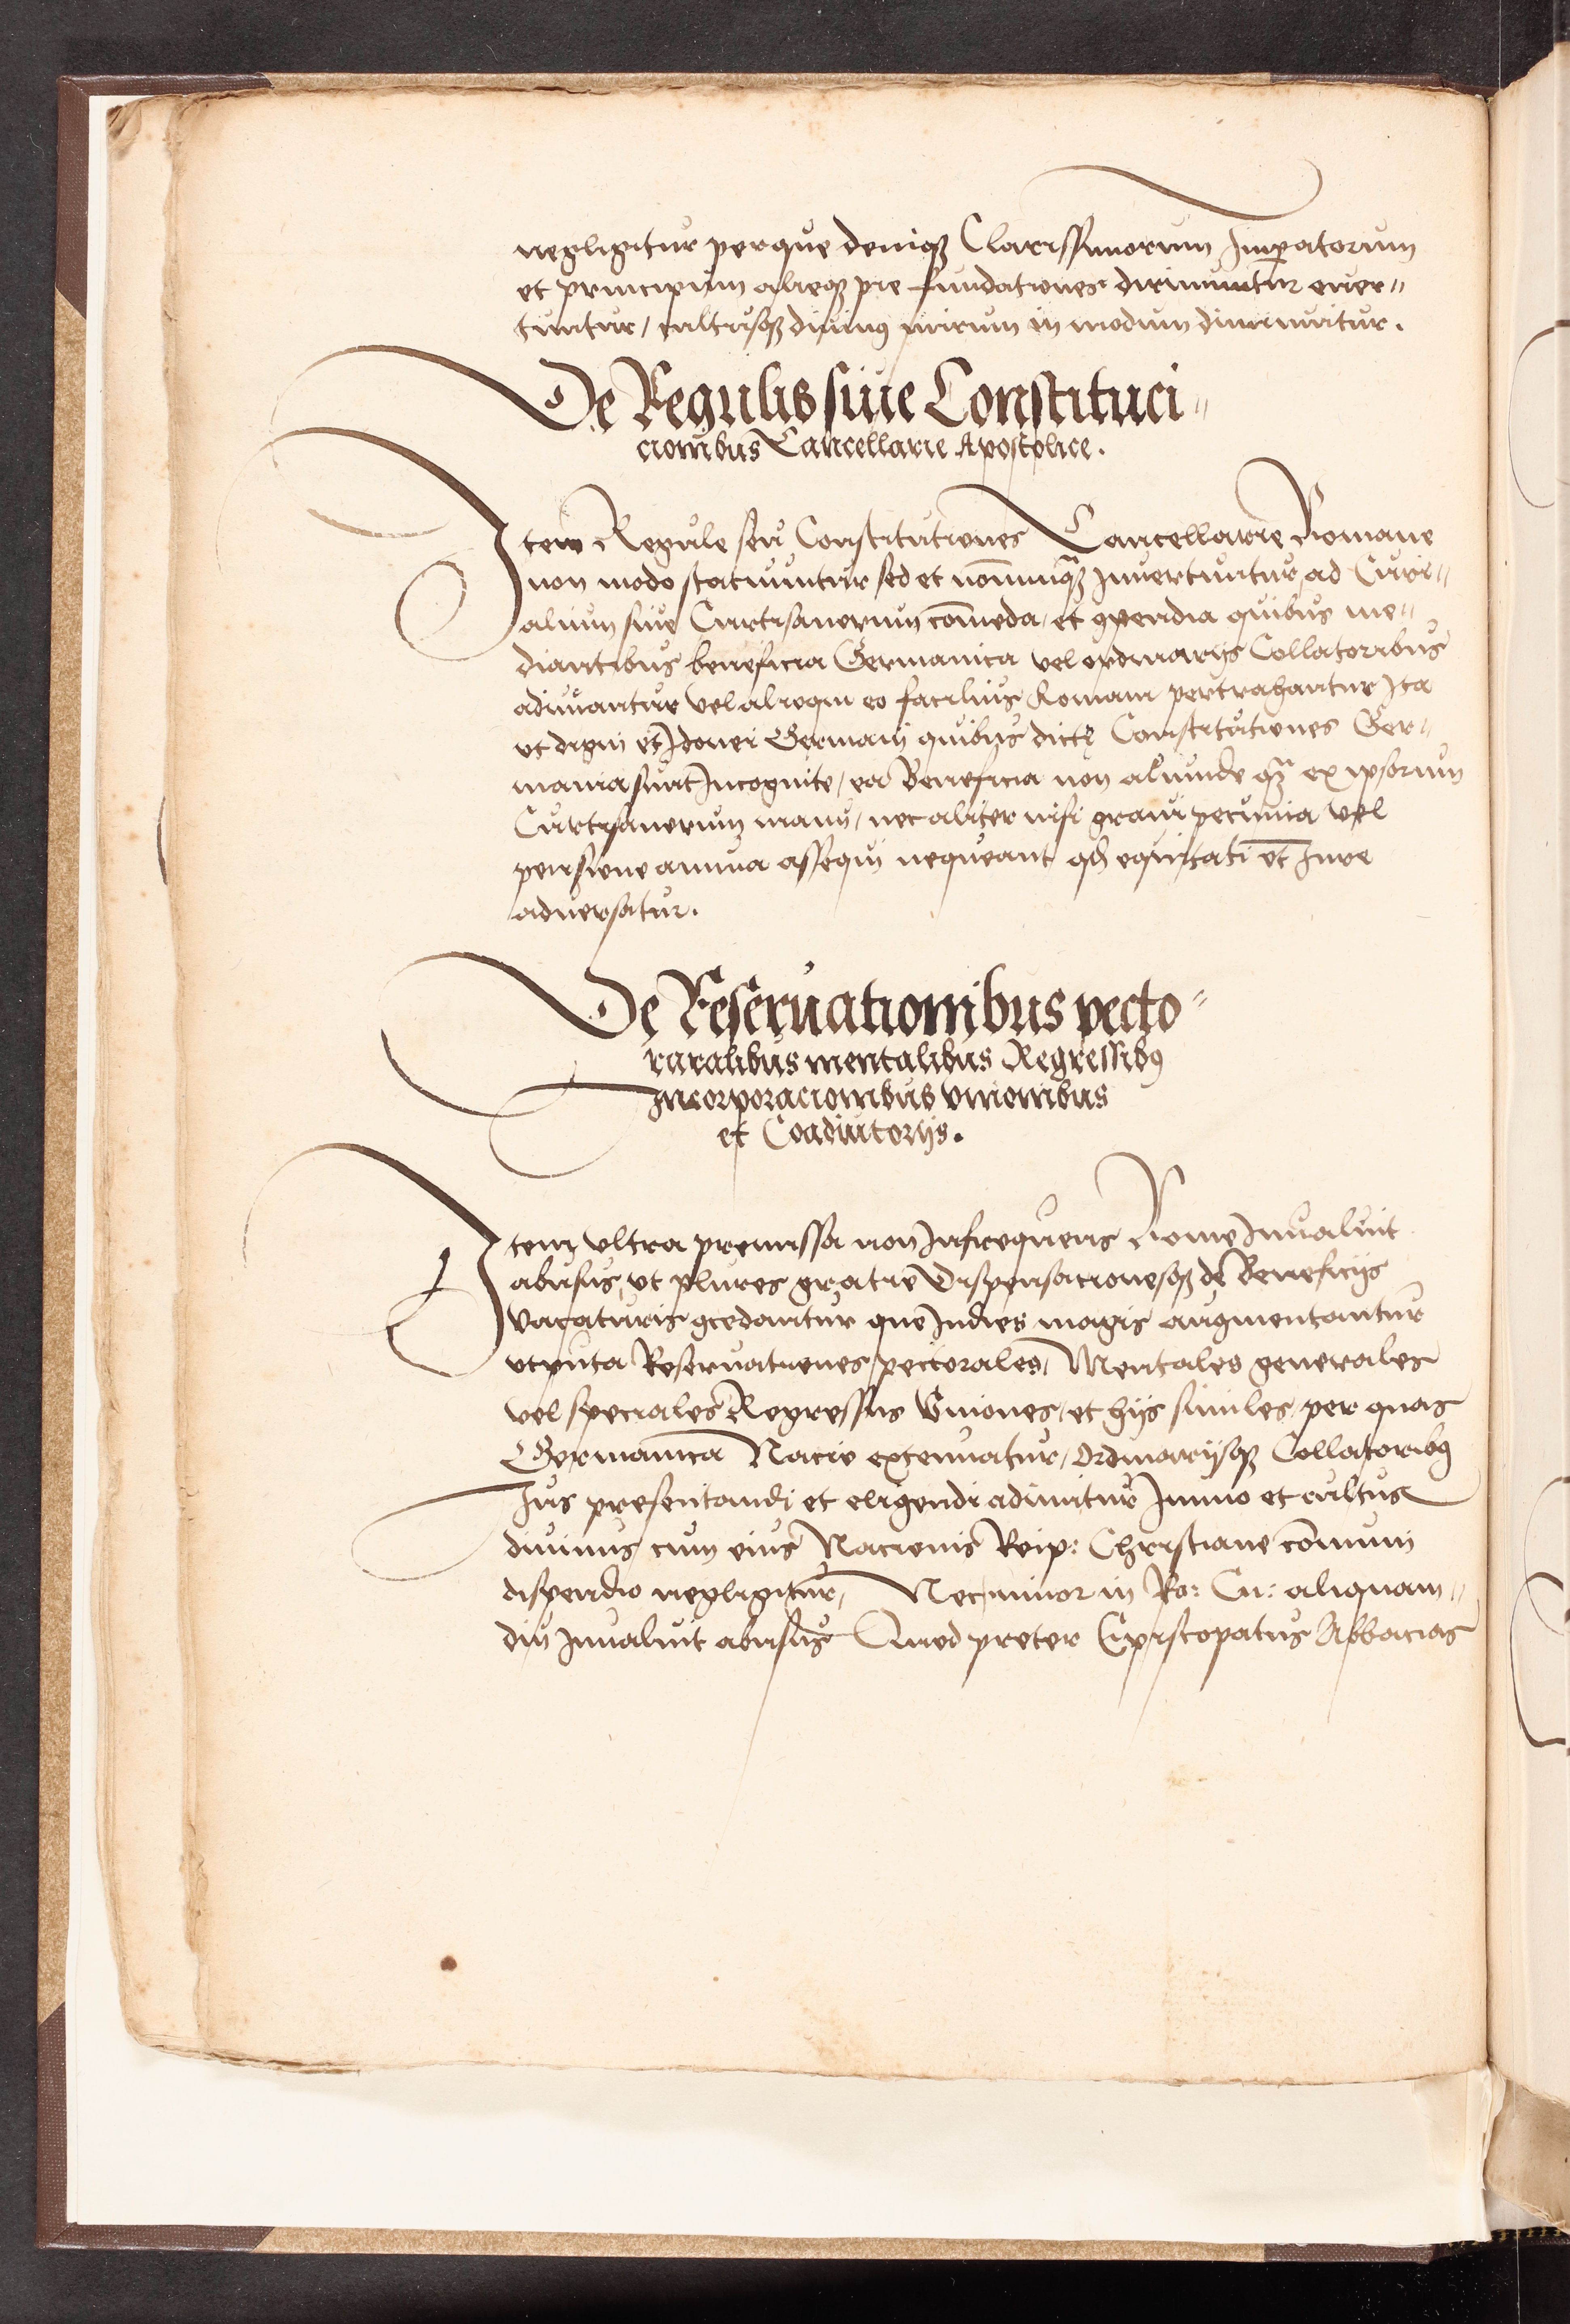 negligitur perque deniqꝫ Clarissimorum Imꝑatorum
et principum alieqꝫ pie fundationes dirimuntur euer〃
tuntur / cultusqꝫ diuinꝰ mirum in modum diminuitur.
De Regulis siue Constituci〃
cionibus Cancellarie Apostolice.
Item Regule seu Constitutiones Cancellarie Romane
non modo statuuntur sed et nōnnunqꝫ Inuertuntur, ad Curi〃
alium siue Curtisanorum cōmoda / et ꝯpendia quibus me〃
diantibus beneficia Germanica vel ordinarijs Collatoribus
adimantur vel alioqui eo facilius Romam pertrahantur Ita
vt digni et Idonei Germani quibus dictę Constitutiones Ger〃
mania sunt Incognite / ea Beneficia non aliunde qꝫ ex ipsorum
Curtisanorum manu / nec aliter nisi graui pecunia vel
pensione annua assequi nequeant qđ equitati et Iure
aduersatur.
De Reseruationibus pecto〃
raralibus mentalibus Regressibꝰ
Incorporacionibus vnionibus
et Coadiutorijs.
Item vltra premissa non Infrequens Rome Inualuit
abusus, vt plures gratie Dispensacionesqꝫ de Beneficijs
vacaturis ꝯcedantur que Indies magis augmentantur
vtputa Reseruationes / pectorales, Mentales generales
vel speciales Regressus Vniones / et hijs similes / per quas
Germanica Nacio extenuatur / Ordinarijsqꝫ Collatoribꝰ
Ius presentandi et eligendi adimitur Immo et cultus
diuinus cum eius Nacionis Reip: Christiane cōmuni
dispendio negligitur, Nec minor in Ro: Cu: aliquam〃
diu Inualuit abusus Quod preter Episcopatus Abbacias